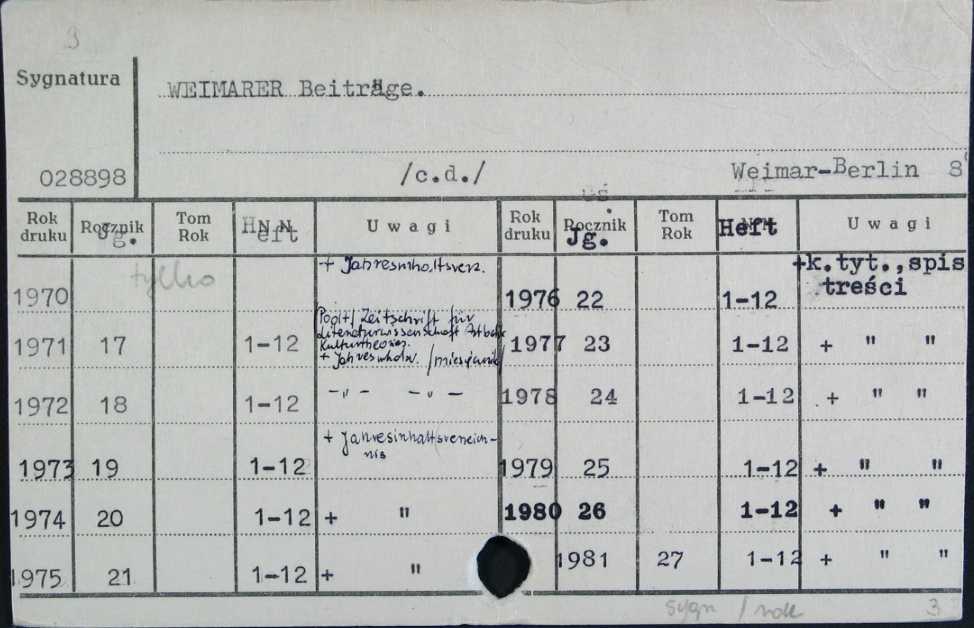 3
Sygnatura
WEIMARER Beiträge.
028898
/c.d./ Weimar-Berlin 8°
Rok druku Rocznik Jg. Tom Rok N.N. Heft Uwagi Rok druku Rocznik Jg. Tom Rok Heft Uwagi
1970 tylko + Jahresinhaltsverz. 1976 22 1-12 +k.tyt.,spis treści
1971 17 1-12 Zeitschrift für
Literaturwissenschaft
Kulturtheorie.
+ Jahresinhalt. /miesięcznik/ 1977 23 1-12 + " "
1972 18 1-12 -"- -"- 1978 24 1-12 + " "
1973 19 1-12 + Jahresinhaltsverzeich-
nis 1979 25 1-12 + " "
1974 20 1-12 + " 1980 26 1-12 + " "
1975 21 1-12 + " 1981 27 1-12 + " "
sygn / rok 3